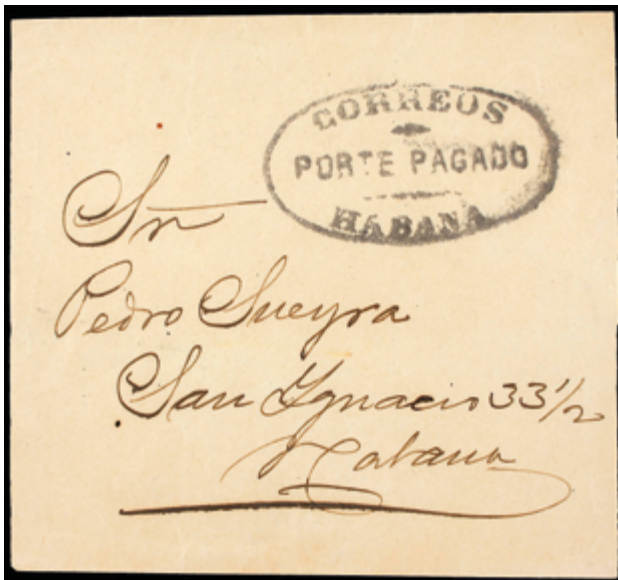 CORREOS
PORTE PAGADO
HABANA
Sr
Pedro Sueyra
San Ygnacio 33 1/2
Habana